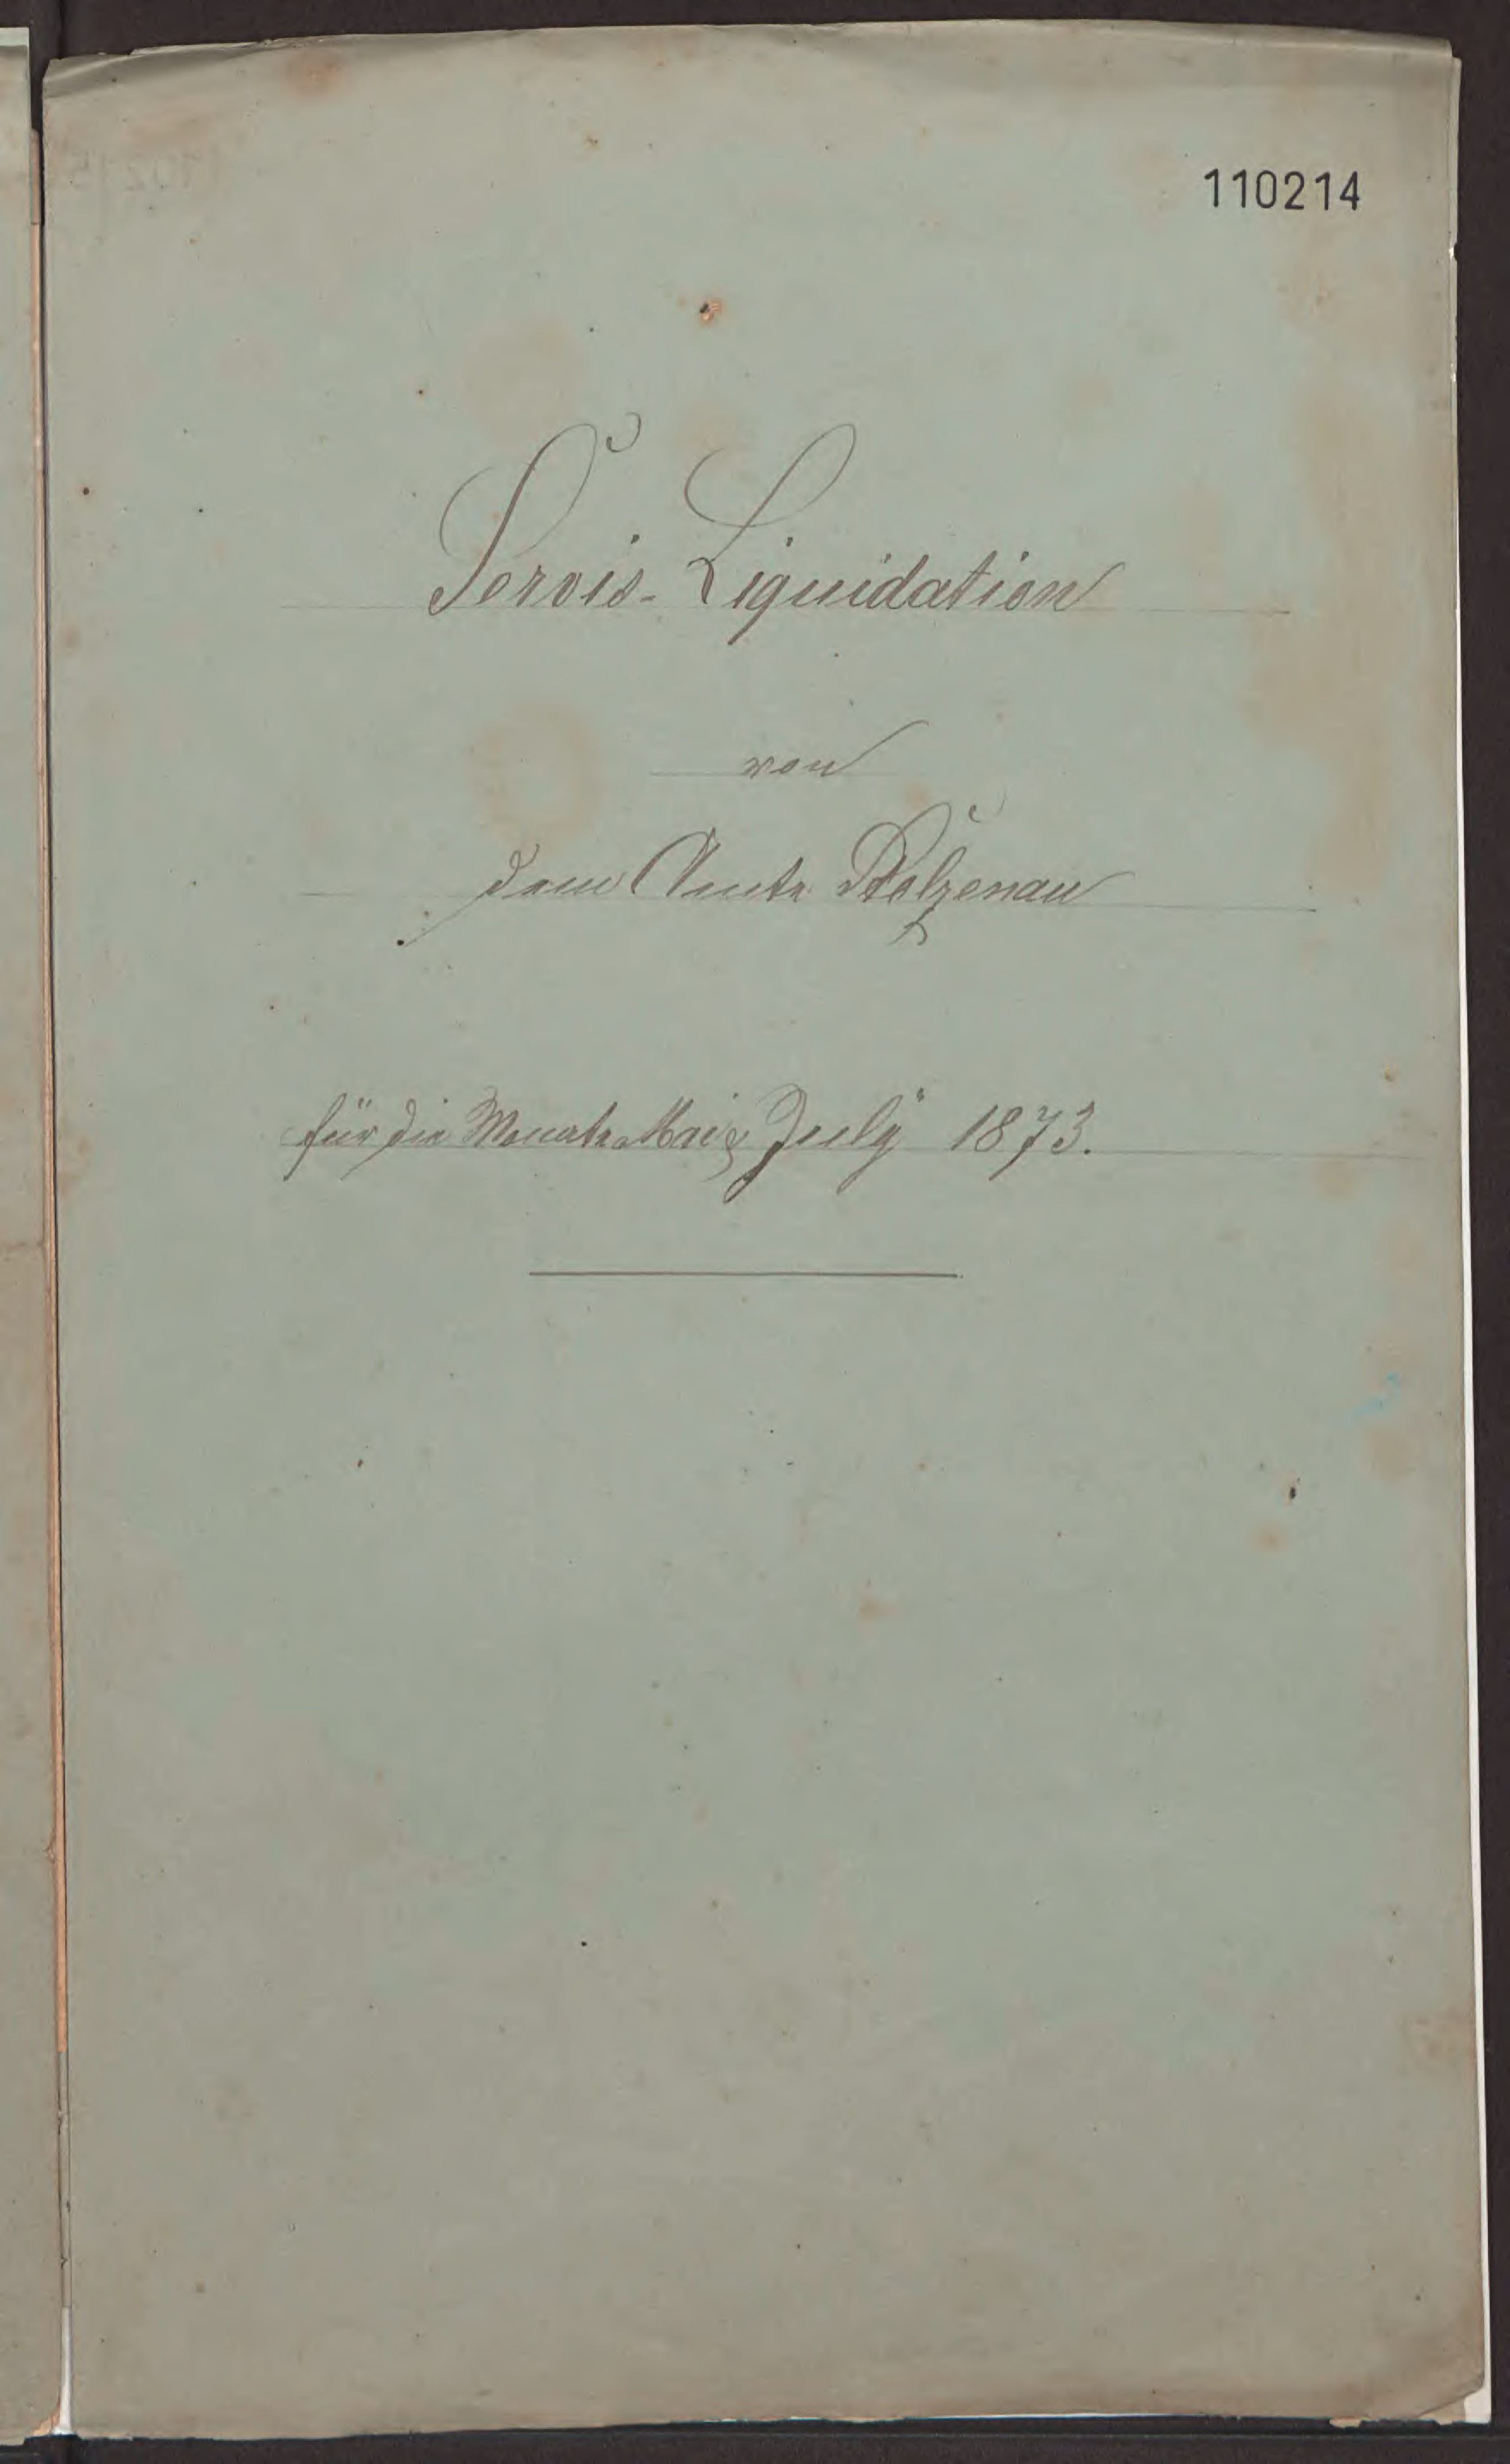 110214
Servis-Liquidation
von
dem Amte Stolzenau
für die Monate Mai & July 1873.